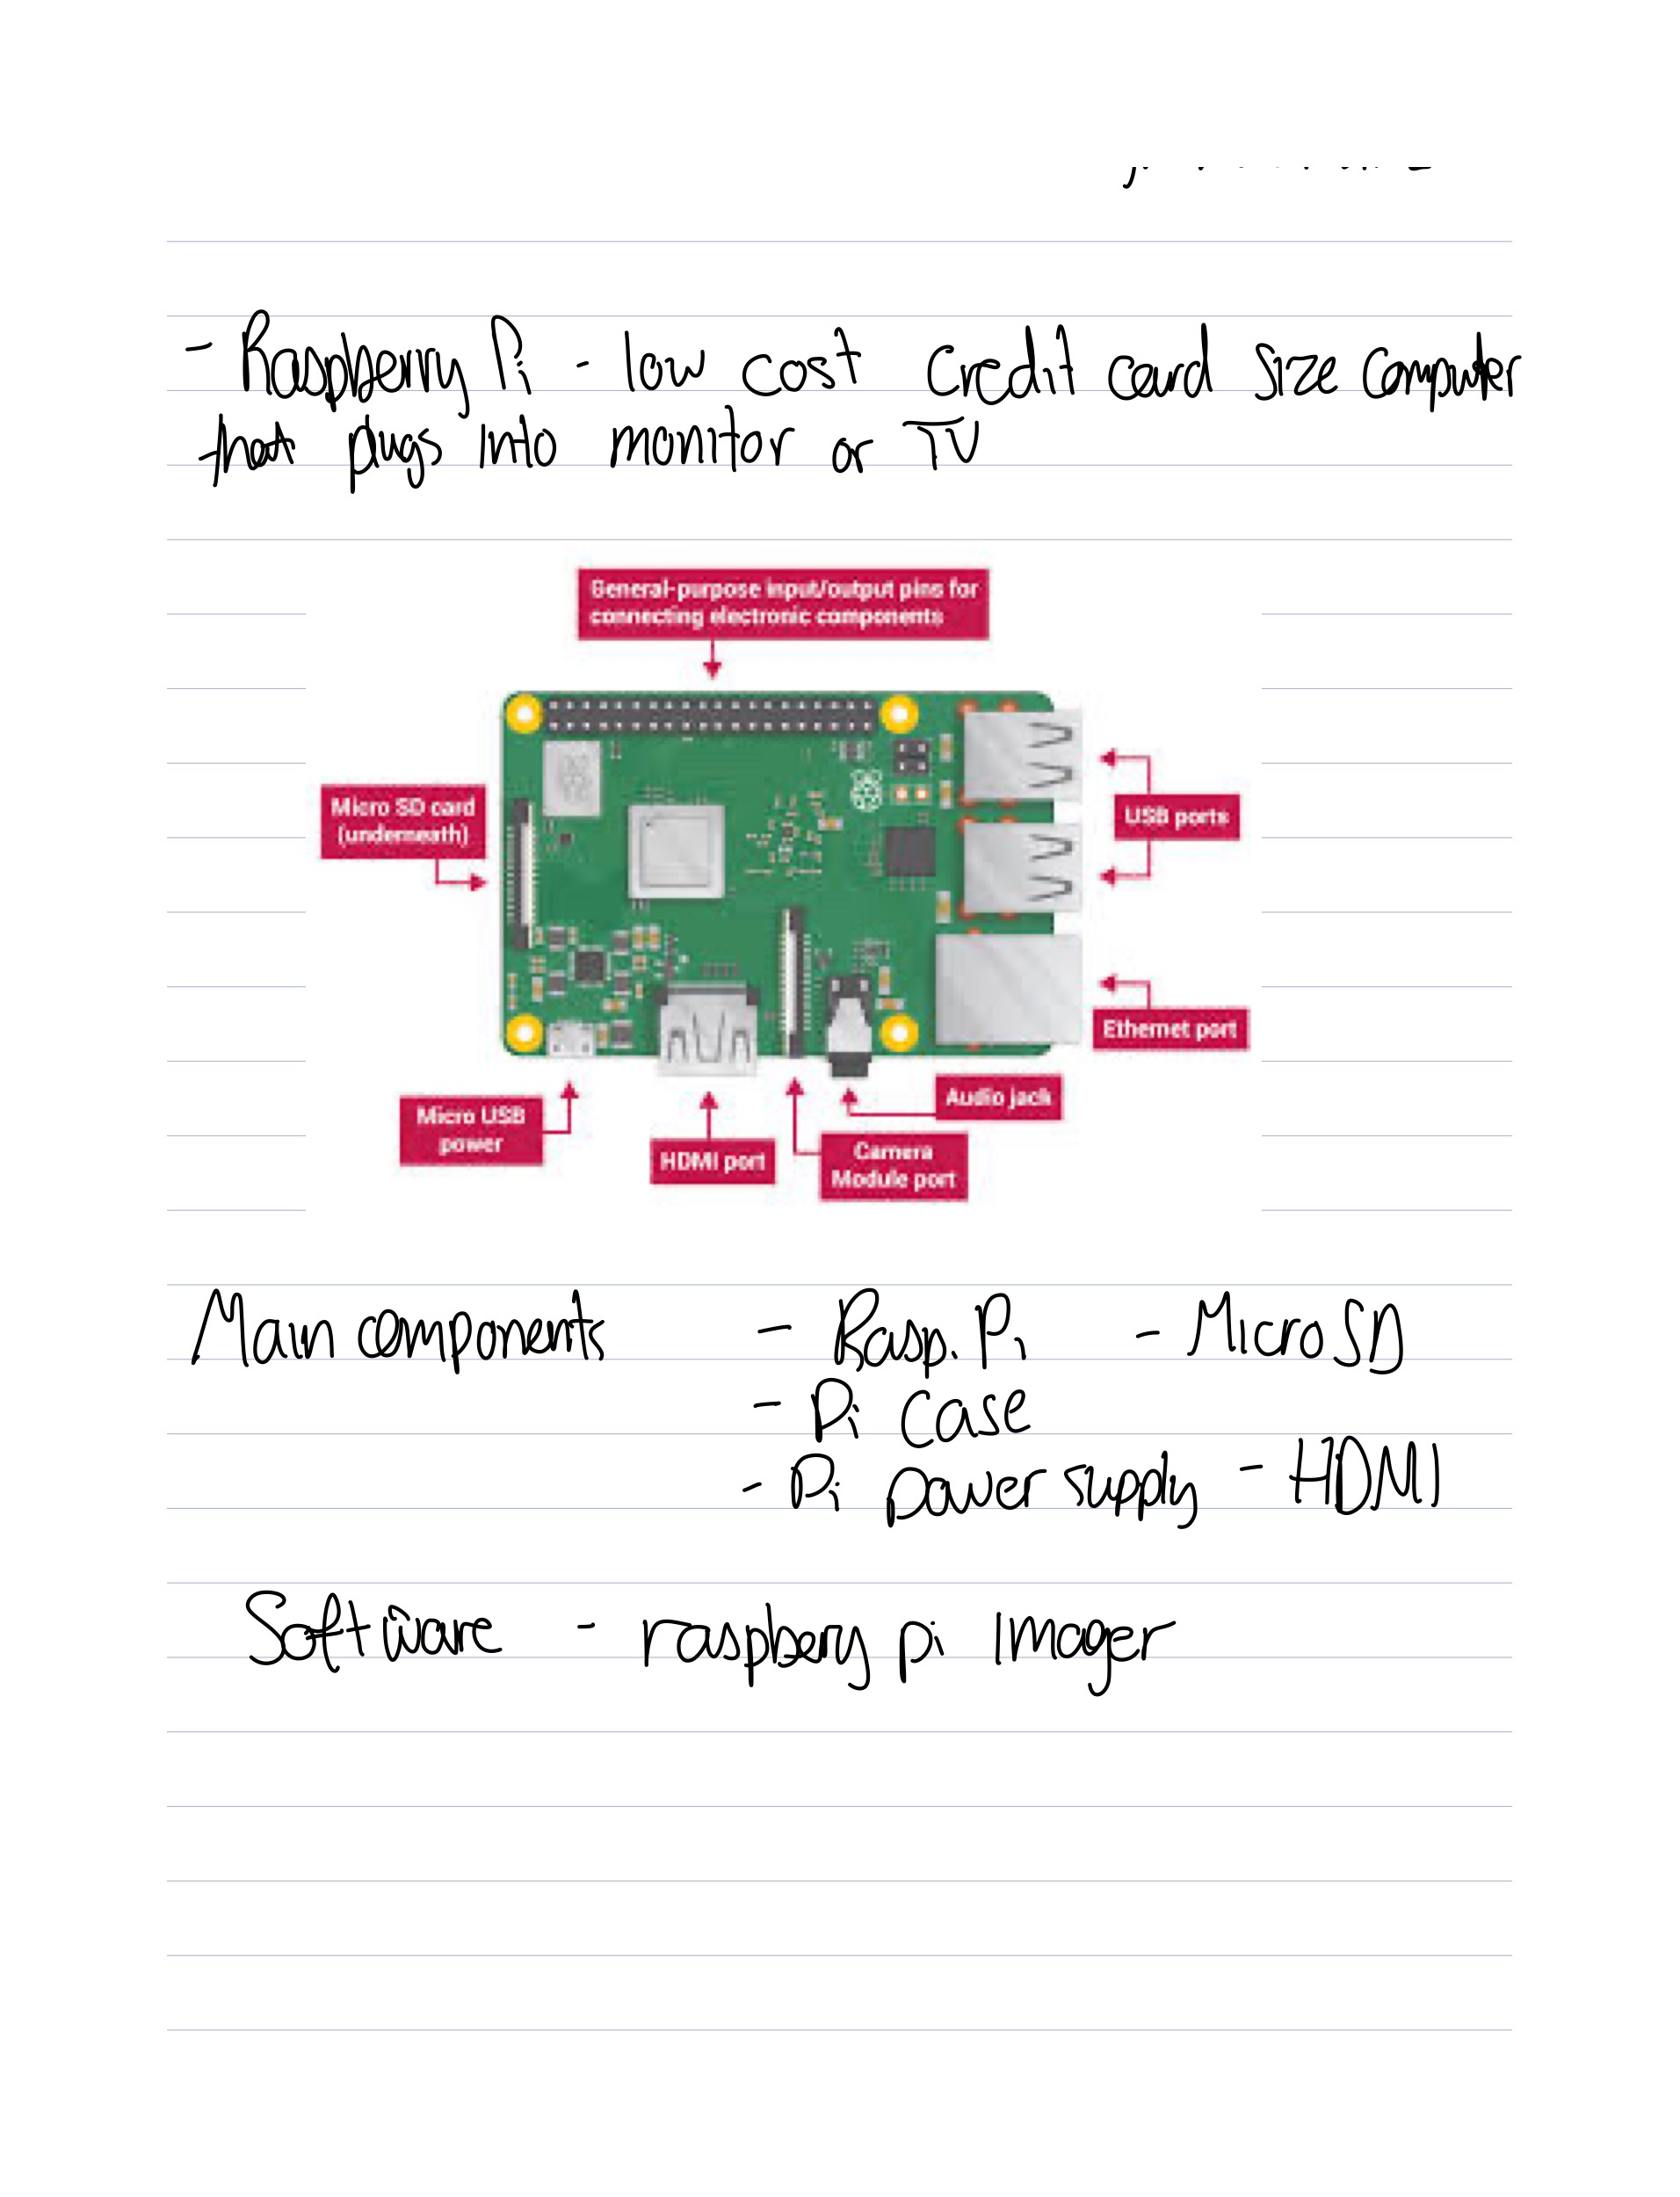 - Raspberry Pi - low cost credit card size computer
that plugs into monitor or TV
General-purpose input/output pins for
connecting electronic components
Micro SD card
(underneath)
USB ports
Ethernet port
Audio jack
Micro USB
power
HDMI port
Camera
Module port
Main components - Rasp. Pi - Micro SD
- Pi Case
- Pi power supply - HDMI
Software - raspberry pi Imager